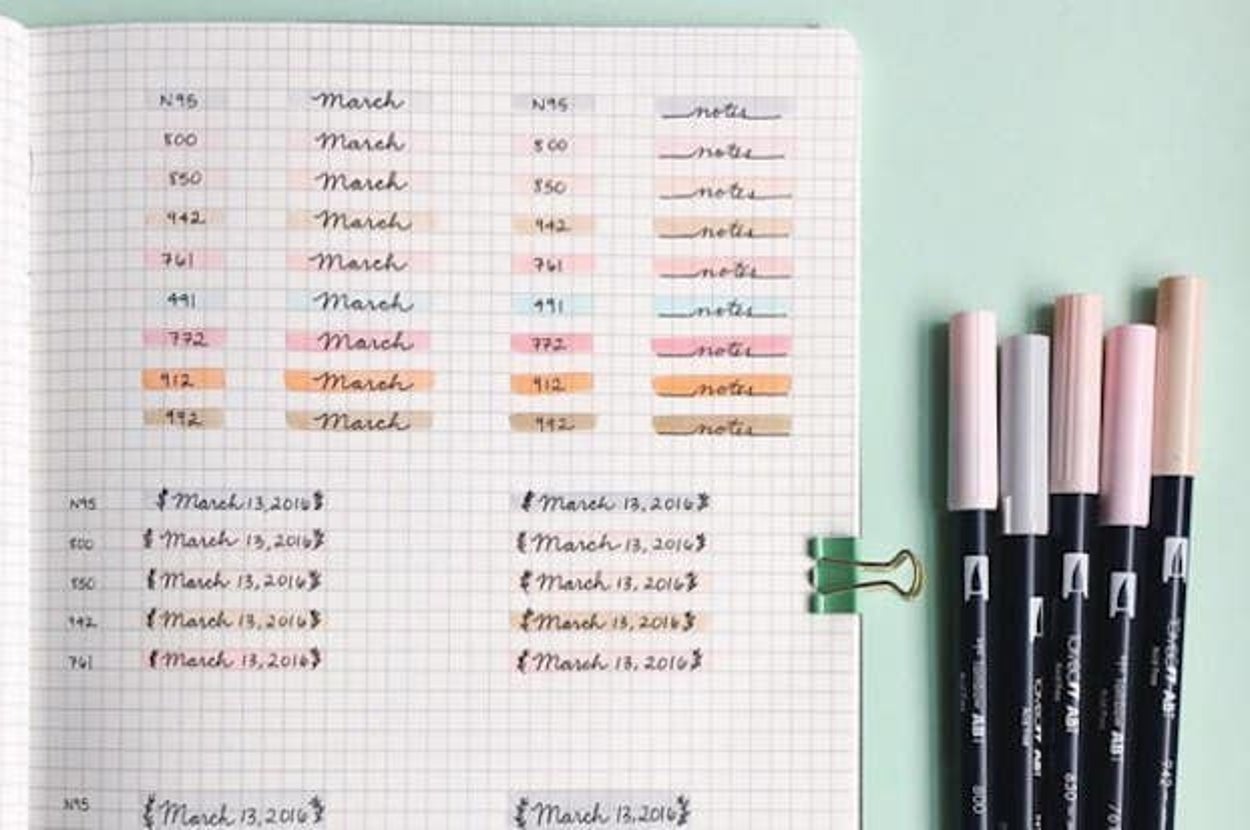 N95 March N95 notes
800 March 800 notes
850 March 850 notes
942 March 942 notes
761 March 761 notes
491 March 491 notes
772 March 772 notes
912 March 912 notes
992 March 992 notes
N95 March 13, 2016 March 13, 2016
800 March 13, 2016 March 13, 2016
850 March 13, 2016 March 13, 2016
942 March 13, 2016 March 13, 2016
761 March 13, 2016 March 13, 2016
N95 March 13, 2016 March 13, 2016
800
850
942